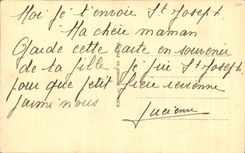 Moi je t'envoie St Joseph
Ma chère maman
Garde cette carte en souvenir
de ta fille je prie St Joseph
pour que petit frère revienne
parmi nous
Lucienne